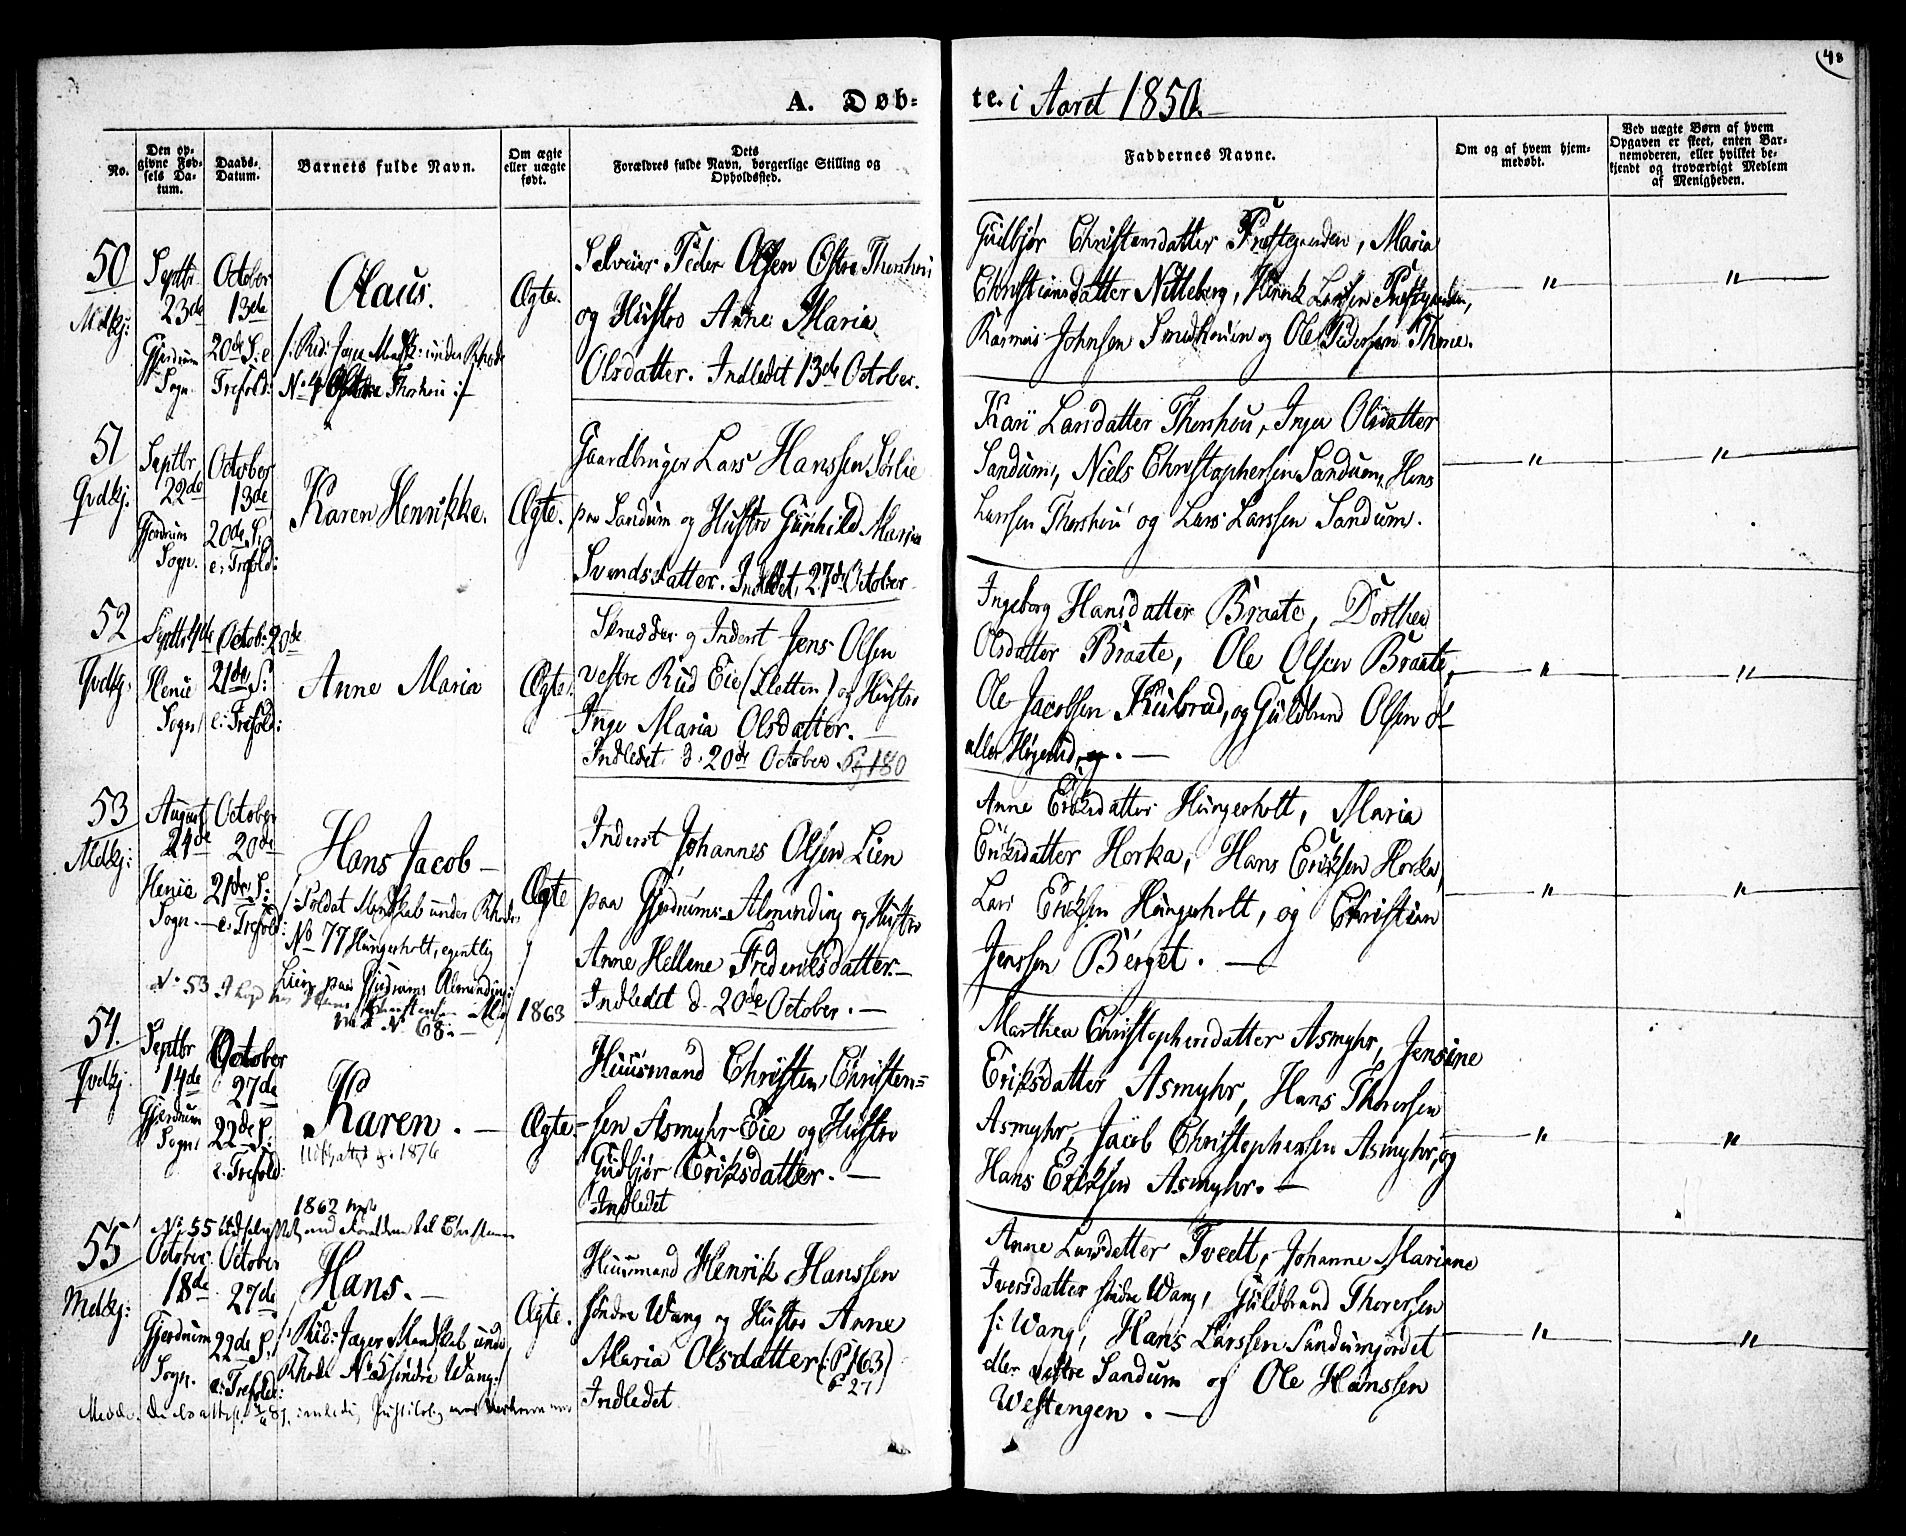 48
A. Døb=
te. i Aaret 1850.
No.
Den op-
givne Fød-
sels Da-
tum.
Daabs-
Datum.
Barnets fulde Navn.
Om ægte
eller uægte
født.
Dets
Forældres fulde Navn, borgerlige Stilling og
Opholdssted.
Faddernes Navne.
Om og af hvem hjem-
medøbt.
Ved uægte Børn af hvem
Opgaven er skeet, enten Bar-
nemoderen, eller hvilket be-
kjendt og troværdigt Medlem
af Menigheden.
50
Mdkj:
Septbr
23de
Gjerdrum
Sogn
October
13de
20de S: e
Trefold:
Olaus.
No 4 Østre Thorshou :/
Ægte.
Selveier Peder Olsen Østre Thorshou
og Hustro Anne Maria
Olsdatter. Indledet 13de October.
Gudbjør Christensdatter Præstegaarden, Maria
Christiansdatter Nitteberg, Henrik Larsen Præstegaarden,
Rasmus Johnsen Smedhouen og Ole Pedersen
" "
51
Qvdkj:
Septbr
22de
Gjerdrum
Sogn.
October
13de
20de S:
e: Trefold:
Karen Henrikke.
Ægte.
Gaardbruger Lars Hanssen Sørlie
paa Sandum og Hustro Gunhild Maria
Svendsdatter. Indledet 27de October
Kari Larsdatter Thorshou, Inger Olsdatter
Sandum, Niels Christophersen Sandum, Hans
Larssen Thorshou og Lars Larssen Sandum.
" "
52
Qvdkj.
Septbr
Henie
Sogn
Octob: 20de
21de S:
e: Trefold:
Anne Maria
Ægte
Skrædder og Inderst Jens Olsen
vestre Rud Eie (Sletten) og Hustro
Inge Maria Olsdatter. —
Indledet d. 20de October Pg 180
Ingeborg Hansdatter Braate, Dorthea
Olsdatter Braate, Ole Olsen Braate,
Ole Jacobsen Kulsrud, og Guldbrand Olsen
" "
53
Mdkj:
August
24de
Henie
Sogn.
October
20de
21de S:
e: Trefold:
Hans Jacob —
/: Soldat Mandskab under Rhode
No 77 Hungerholt, egentlig
Lien paa Gjerdrums Almending :/
No 53
1863
No 68. —
Ægte
Inderst Johannes Olsen Lien
paa Gjerdrums Almending og Hustro
Anne Hellene Frederiksdatter. —
Indledet d. 20de October. —
Anne Eriksdatter Hungerholt, Maria
Eriksdatter Horka, Hans Eriksen Horka,
Lars Eriks. Hungerholt, og Christian
Jenssen Berget. —
" "
54.
Qvdkj
Septbr
14de
Gjerdrum
Sogn
October
27de
22de S:
e: Trefold:
Karen. —
1876
Ægte.
Huusmand Christen Christen=
sen Asmyhr Eie og Hustro
Gudbjør Eriksdatter. —
Indledet
Marthea Christophersdatter Asmyhr, Jensine
Eriksdatter Asmyhr, Hans Thoresen
Asmyhr, Jacob Christophersen Asmyhr, og
Hans Eriksen Asmyhr. —
" "
1862
No 55
55
Mdkj:
October
18de
Gjerdrum
Sogn.
October
27de
22de S:
e: Trefold:
Hans. —
/: Rid: Jæger Mandskab under
Rhode No 25 søndre Wang :/
Ægte.
Huusmand Henrik Hanssen
søndre Wang og Hustro Anne
Maria Olsdatter (: P 163)
Indledet
Anne Larsdatter Tvedt, Johanne Mariane
Iversdatter søndre Wang, Guldbrand Thoresen
s: Wang, Hans Larssen Sandumjordet
eller vestre Sandum og Ole Hanssen
Westengen. —
" "